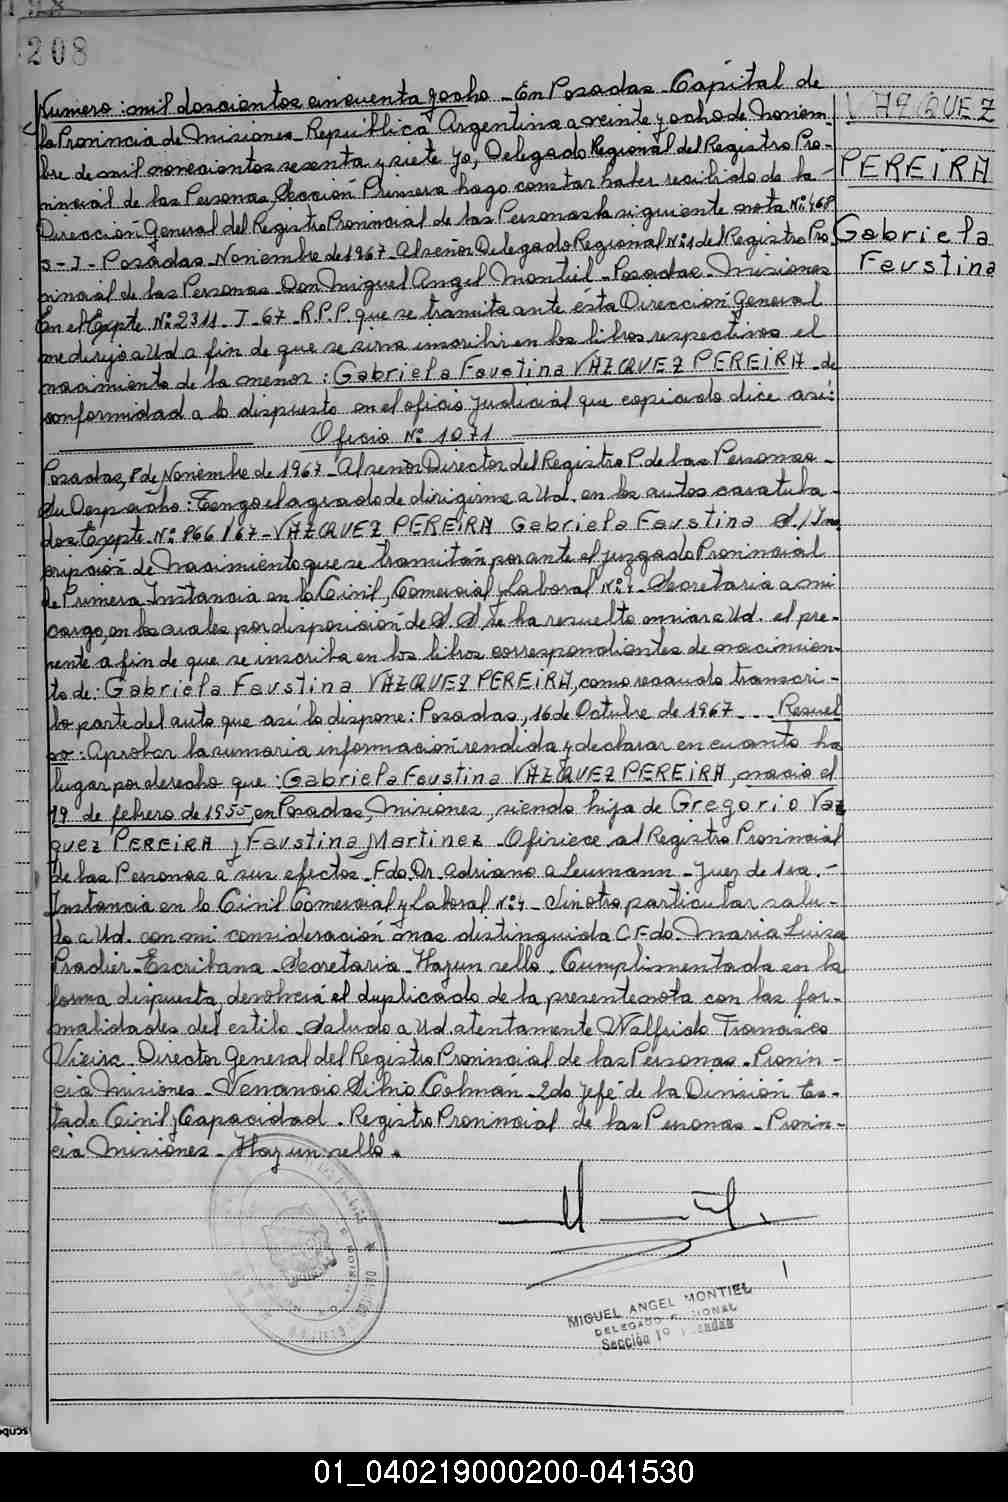 208
Numero: mil doscientos cincuenta y ocho - En Posadas - Capital de
la Provincia de Misiones - República Argentina a veinte y ocho de Noviem-
bre de mil novecientos sesenta y siete Yo, Delegado Regional del Registro Pro-
vincial de las Personas, Sección Primera hago constar haber recibido de la -
Dirección General del Registro Provincial de las Personas la siguiente nota Nº 468
Posadas - Noviembre de 1967 - Al señor Delegado Regional Nº 1 del Registro Pro
vincial de las Personas Don Miguel Angel Montiel - Posadas - Misiones
En el Expte. Nº 2311 - J - 67 - R.P.P. que se tramita ante ésta Dirección General
me dirijo a Ud a fin de que se sirva inscribir en los libros respectivos el
nacimiento de la menor: Gabriela Faustina VAZQUEZ PEREIRA - de
conformidad a lo dispuesto en el oficio Judicial que copiado dice así:
Oficio Nº 1071
Posadas, 8 de Noviembre de 1967 - Al señor Director del Registro P. de las Personas -
Su Despacho: Tengo el agrado de dirigirme a Ud. en los autos caratula-
dos Expte. Nº 866/67 - VAZQUEZ PEREIRA Gabriela Faustina S./Ins
cripción de Nacimiento que se tramitan por ante el Juzgado Provincial
de Primera Instancia en lo Civil, Comercial y Laboral Nº 4 - Secretaria a mi
cargo, en los cuales por disposición de S.S. se ha resuelto enviar a Ud. el pre-
sente a fin de que se inscriba en los libros correspondientes de nacimien-
to de: Gabriela Faustina VAZQUEZ PEREIRA, como recaudo transcri-
bo parte del auto que así lo dispone: Posadas, 16 de Octubre de 1967 - Resuel
vo: Aprobar la sumaria información rendida y declarar en cuanto ha
lugar por derecho que: Gabriela Faustina VAZQUEZ PEREIRA, nacio el
19 de febrero de 1955, en Posadas, Misiones, siendo hija de Gregorio Vaz
quez PEREIRA y Faustina Martinez - Ofiziece al Registro Provincial
de las Personas a sus efectos - Fdo. Dr. Adriano A Leumann - Juez de 1ra. -
Instancia en lo Civil Comercial y Laboral Nº 4 - Sin otro particular salu-
do a Ud. con mi consideración mas distinguida C Fdo. Maria Luisa
Pradier - Escribana - Secretaria - Hay un sello. Cumplimentada en la
forma dispuesta, devolverá el duplicado de la presente nota con las for-
malidades del estilo - Saludo a Ud. atentamente Walfrido Francisco
Vieira - Director General del Registro Provincial de las Personas - Provin-
cia Misiones - Venancio Silvio Colmán - 2do Jefe de la División Es-
tado Civil y Capacidad - Registro Provincial de las Personas - Provin-
cia Misiones - Hay un sello.
VAZQUEZ
PEREIRA
Gabriela
Faustina
MIGUEL ANGEL MONTIEL
DELEGADO REGIONAL
Sección 1ª Posadas
01_040219000200-041530